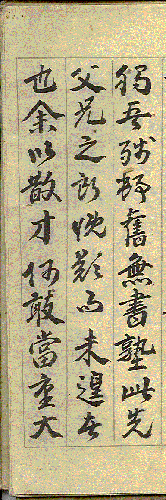 獨吾殘鄕舊無書塾此先
父兄之所慨歎而未遑者
也余以散才何敢當重大